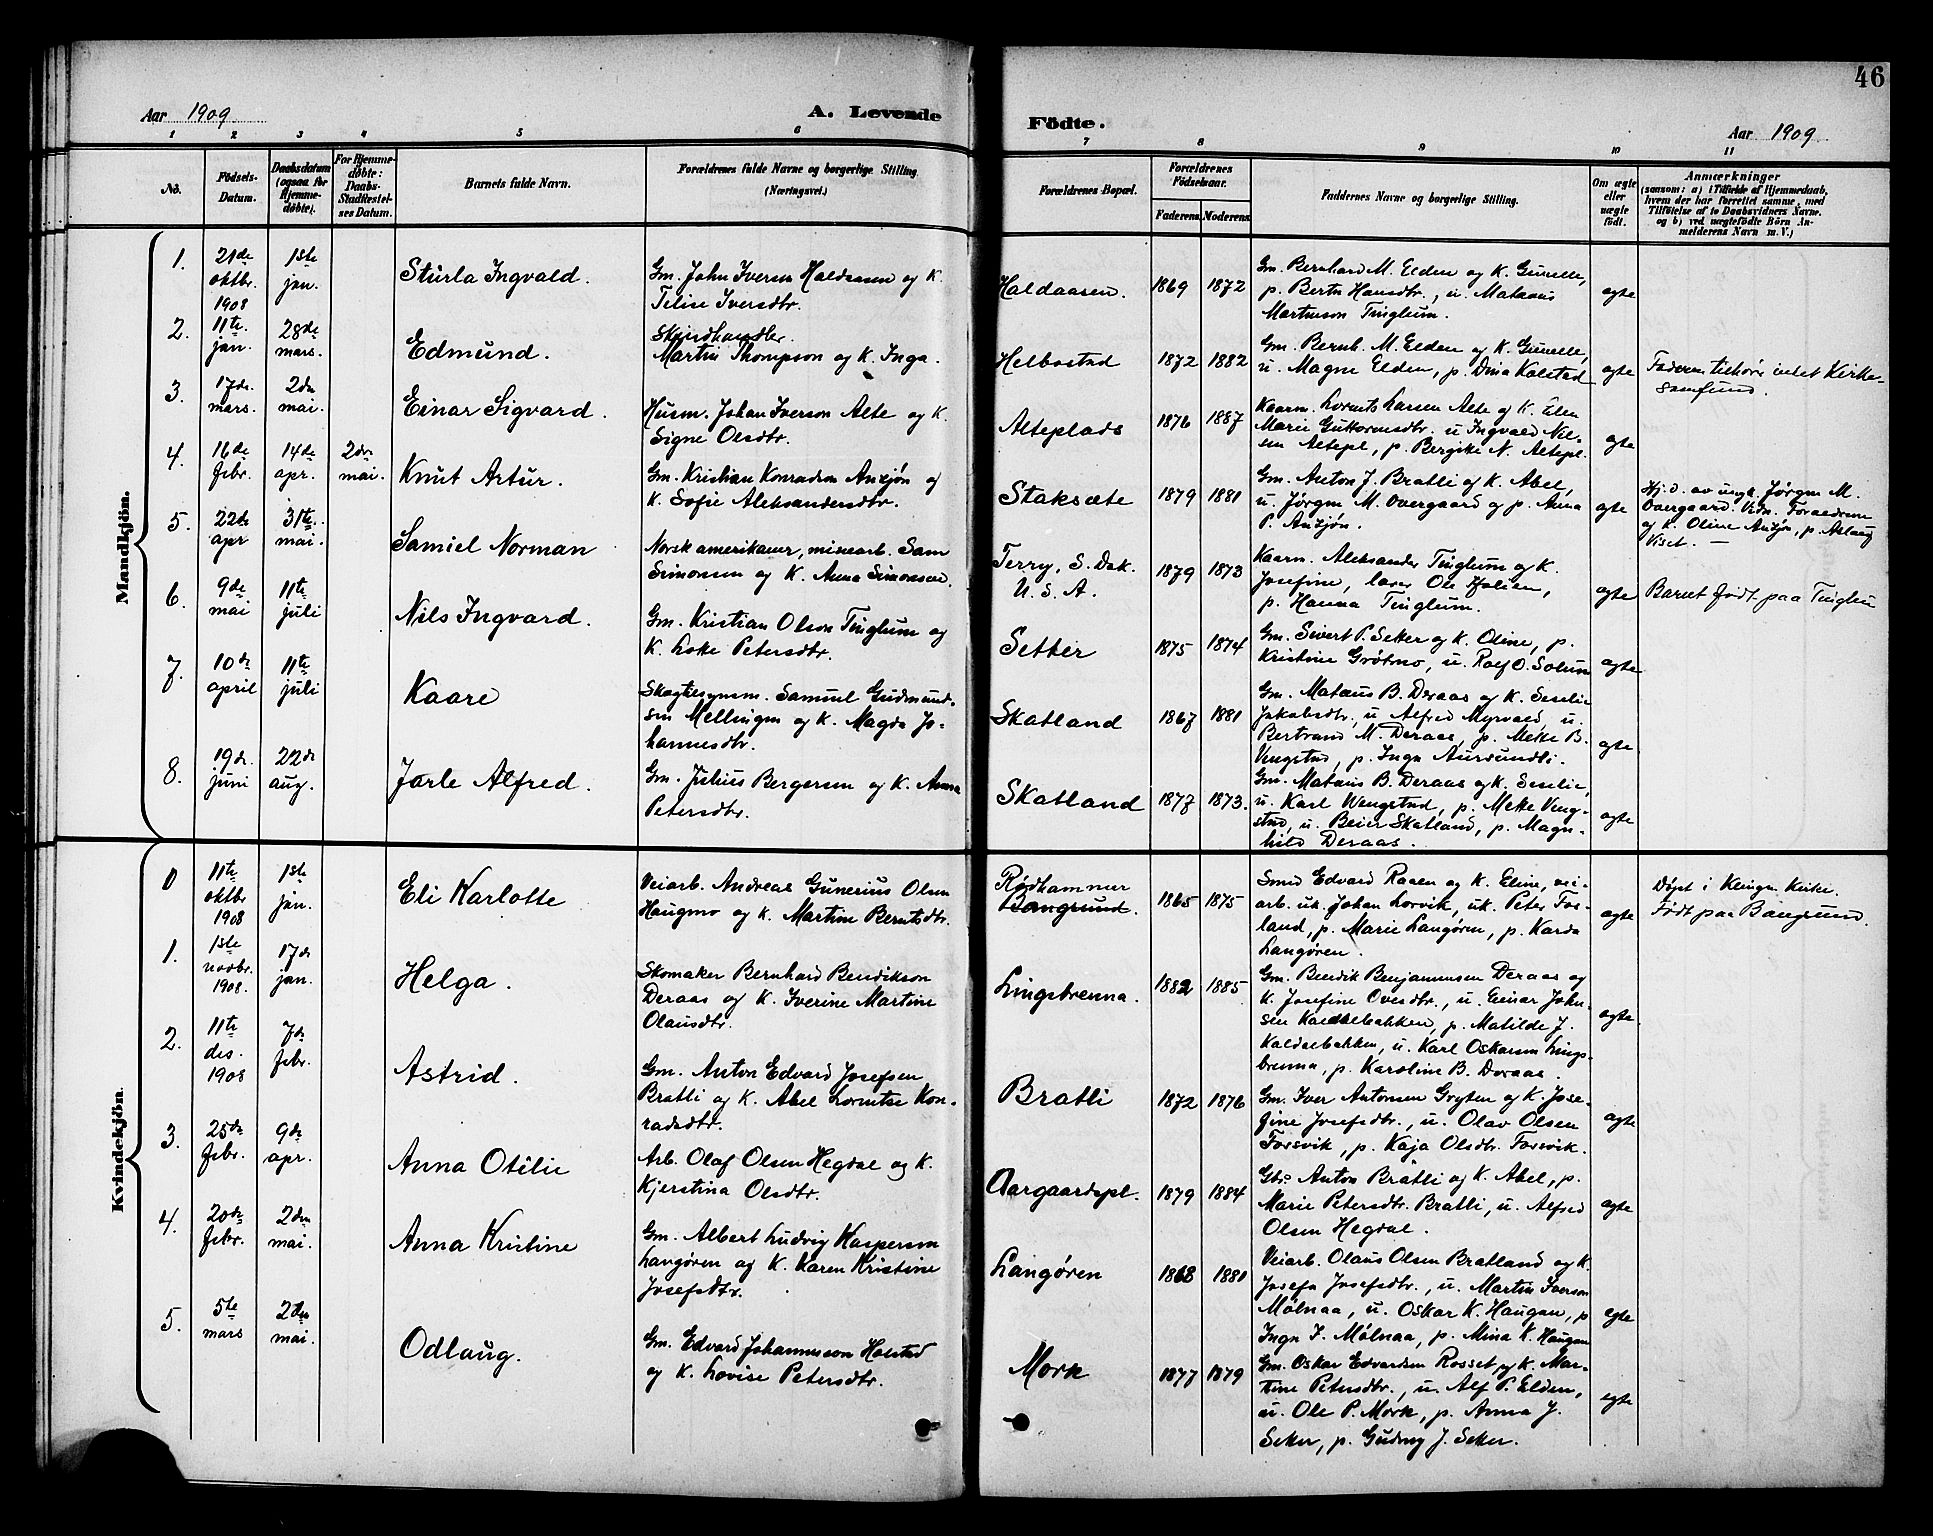 46
Aar 1909.
A. Levende
Födte.
Aar 1909
1 2 3 4 5 6 7 8 9 10 11
No.
Födsels-
Datum.
Daabsdatum
(ogsaa for
Hjemme-
døbte).
For Hjemme-
døbte:
Daabs-
Stadfæstel-
ses Datum.
Barnets fulde Navn.
Forældrenes fulde Navne og borgerlige Stilling
(Næringsvei.)
Forældrenes Bopæl.
Forældrenes
Födselsaar.
Faderens
Moderens
Faddernes Navne og borgerlige Stilling.
Om ægte
eller
uægte
født.
Anmærkninger
(saasom: a) i Tilfælde af Hjemmedaab,
hvem der har forrettet samme, med
Tilføielse af to Daabsvidners Navne,
og b) ved uægtefødte Börn An-
melderens Navn m. V.)
Mandkjön.
1.
21de
oktbr.
1908
1ste
jan.
Sturla Ingvald.
Gm. John Iversen Haldaasen og K.
Telise Iversdtr.
Haldaasen.
1869
1872
Gm. Bernhard M. Elden og K. Gunelle,
p. Hansdtr., u. Mataus
Martinson Tinglum.
egte
2.
11te
jan.
28de
mars.
Edmund.
Skindhandler
Martin Thompson og K. Inga.
Helbostad
1872
1882
Gm. Bernh. M. Elden og K. Gunelle,
u. Magne Elden, p. Dina Kolstad
egte
Faderen tilhörer intet Kirke-
samfund.
3.
17de
mars.
2den
mai.
Einar Sigvard.
Husm. Johan Iverson Alte og K.
Signe Olsdtr.
Alteplads
1876
1887
Kaarm. Lornts Larsen Alte og K. Elen
Marie Guttormsdtr. u. Ingvald Nil-
sen Altepl., p. N. Altepl.
egte
4.
16de
febr.
14de
apr.
2den
mai.
Knut Artur.
Gm. Kristian Konradsen Anzjøn og
K. Sofie Aleksandersdtr.
Staksæte
1879
1881
Gm. Anton J. Bratli og K. Abel,
u. Jørgen M. Overgaard og p. Anna
P. Anzjøn.
egte
Hj. d. av ungk. Jørgen M.
Overgaard. Vidn. Foraeldrene
og K. Oline Anzjøn, p. Aslaug
Viset. —
5.
22de
apr
31te
mai.
Samiel Norman
Norskamerikaner, minearb. Sam
Simonsen og K. Anna Simonsen.
Terry, S. Dak.
U. S. A.
1879
1873
Kaarm. Aleksander Tinglum og K.
Josefine, lærer Ole Holien,
p. Hanna Tinglum.
egte
Barnet födt paa Tinglum
6.
9de
mai
11te
juli
Nils Ingvard.
Gm. Kristian Olson Tinglum og
K. Lotte Petersdtr.
Setter
1875
1874
Gm. Sivert P. Setter og K. Oline, p.
Kristine Grøtmo, u. Rolf O. Solum
egte
7.
10de
april
11te
juli
Kaare
Skogtilsynsm. Samuel Gudmund-
sen Mellingen og K. Magda Jo-
hannesdtr.
Skatland
1867
1881
Gm. Mataus B. Deraas og K. Seselie
Jakobsdtr., u. Alfred Myrvold, u.
Bertrand M. Deraas, p. Mette B.
Vengstad, p. Inga Aursundli.
egte
8.
19de
juni
22de
aug.
Jarle Alfred.
Gm. Julius Bergersen og K. Anna
Petersdtr.
Skatland
1877
1873.
Gm. Mataus B. Deraas og K. Seselie,
u. Karl Wengstad, p. Mette Veng-
stad, u. Beier Skatland, p. Magn-
hild Deraas.
egte
Kvindekjön.
0
11te
oktbr
1908
1ste
jan.
Eli Karlotte
Veiarb. Andreas Gunerius Olsen
Haugmo og K. Martine Berntsdtr.
Rødhammer
Bangsund.
1865
1875
Smed Edvard Raaen og K. Eline, vei-
arb. uk. Johan Lorvik, uk. Peter Fos-
land, p. Marie Langøren, p. Karda
Langøren.
egte
Døpt i Klinga Kirke.
Født paa Bangsund.
1.
1ste
novbr.
1908.
17de
jan.
Helga.
Skomaker Bernhard Bendikson
Deraas og K. Iverine Martine
Olausdtr.
Lingsbrenna.
1882
1885
Gm. Bendik Benjaminsen Deraas og
K. Josefine Ovesdtr., u. Einar John-
sen Kaldaebakken, p. Matilde J.
Kaldaebakken, u. Karl Oskarsen Lings-
brenna, p. Karoline B. Deraas.
egte.
2.
11te
des.
1908
7de
febr.
Astrid.
Gm. Anton Edvard Josefsen
Bratli og K. Abel Lorentse Kon-
radsdtr.
Bratli
1872
1876
Gm. Iver Antonsen Gryten og K. Jose-
fine Josefsdtr., u. Olav Olsen
Forsvik, p. Kaja Olsdtr. Forsvik.
egte
3.
25de
febr.
9de
apr.
Anna Otilie
Arb. Olaf Olsen Hegdal og K.
Kjerstina Olsdtr.
Aargaardspl.
1879
1884
Gbr. Anton Bratli og K. Abel, p.
Marie Petersdtr. Bratli, u. Alfred
Olsen Hegdal.
egte
4.
20de
febr.
2den
mai.
Anna Kristine
Gm. Albert Ludvig Kasperson
Langøren og K. Karen Kristine
Josefsdtr.
Langøren
1868
1881
Veiarb. Olaus Olsen Bratland og K.
Josefa Josefsdtr., u. Martin Iverson
Mølnaa, u. Oskar K. Haugan, p
Inga I. Mølnaa, p. Mina K. Haugan
egte
5.
5te
mars
2den
mai.
Odlaug.
Gm. Edvard Johannesson Holstad
og K. Lovise Petersdtr.
Mork
1877
1879
Gm. Oskar Edvardsen Rosset og K. Mar-
tine Petersdtr., u. Alf P. Elden,
u. Ole P. Mork, p. Anna J.
Seker, p. Gudny J. Seker.
egte